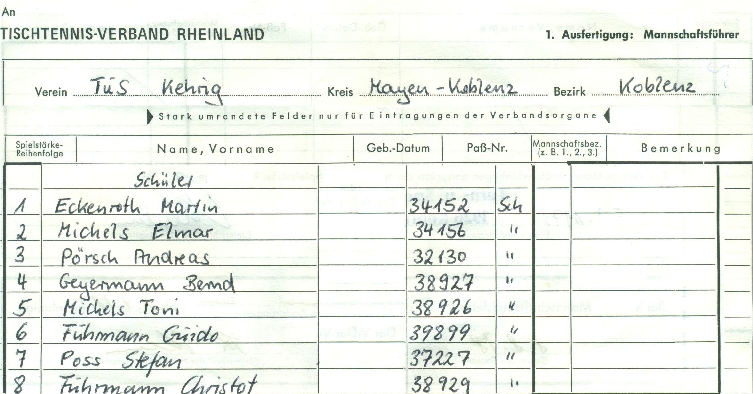 An
TISCHTENNIS-VERBAND RHEINLAND 1. Ausfertigung: Mannschaftsführer
Verein TuS Kehrig Kreis Mayen-Koblenz Bezirk Koblenz
Stark umrandete Felder nur für Eintragungen der Verbandsorgane
Spielstärke-Reihenfolge Name, Vorname Geb.-Datum Paß-Nr. Mannschaftsbez. (z. B. 1., 2., 3.) Bemerkung
Schüler
1 Eckenroth Martin 34152 Sch
2 Michels Elmar 34156 "
3 Pörsch Andreas 32130 "
4 Geyermann Bernd 38927 "
5 Michels Toni 38926 "
6 Führmann Guido 39899 "
7 Poss Stefan 37227 "
8 Führmann Christof 38929 "